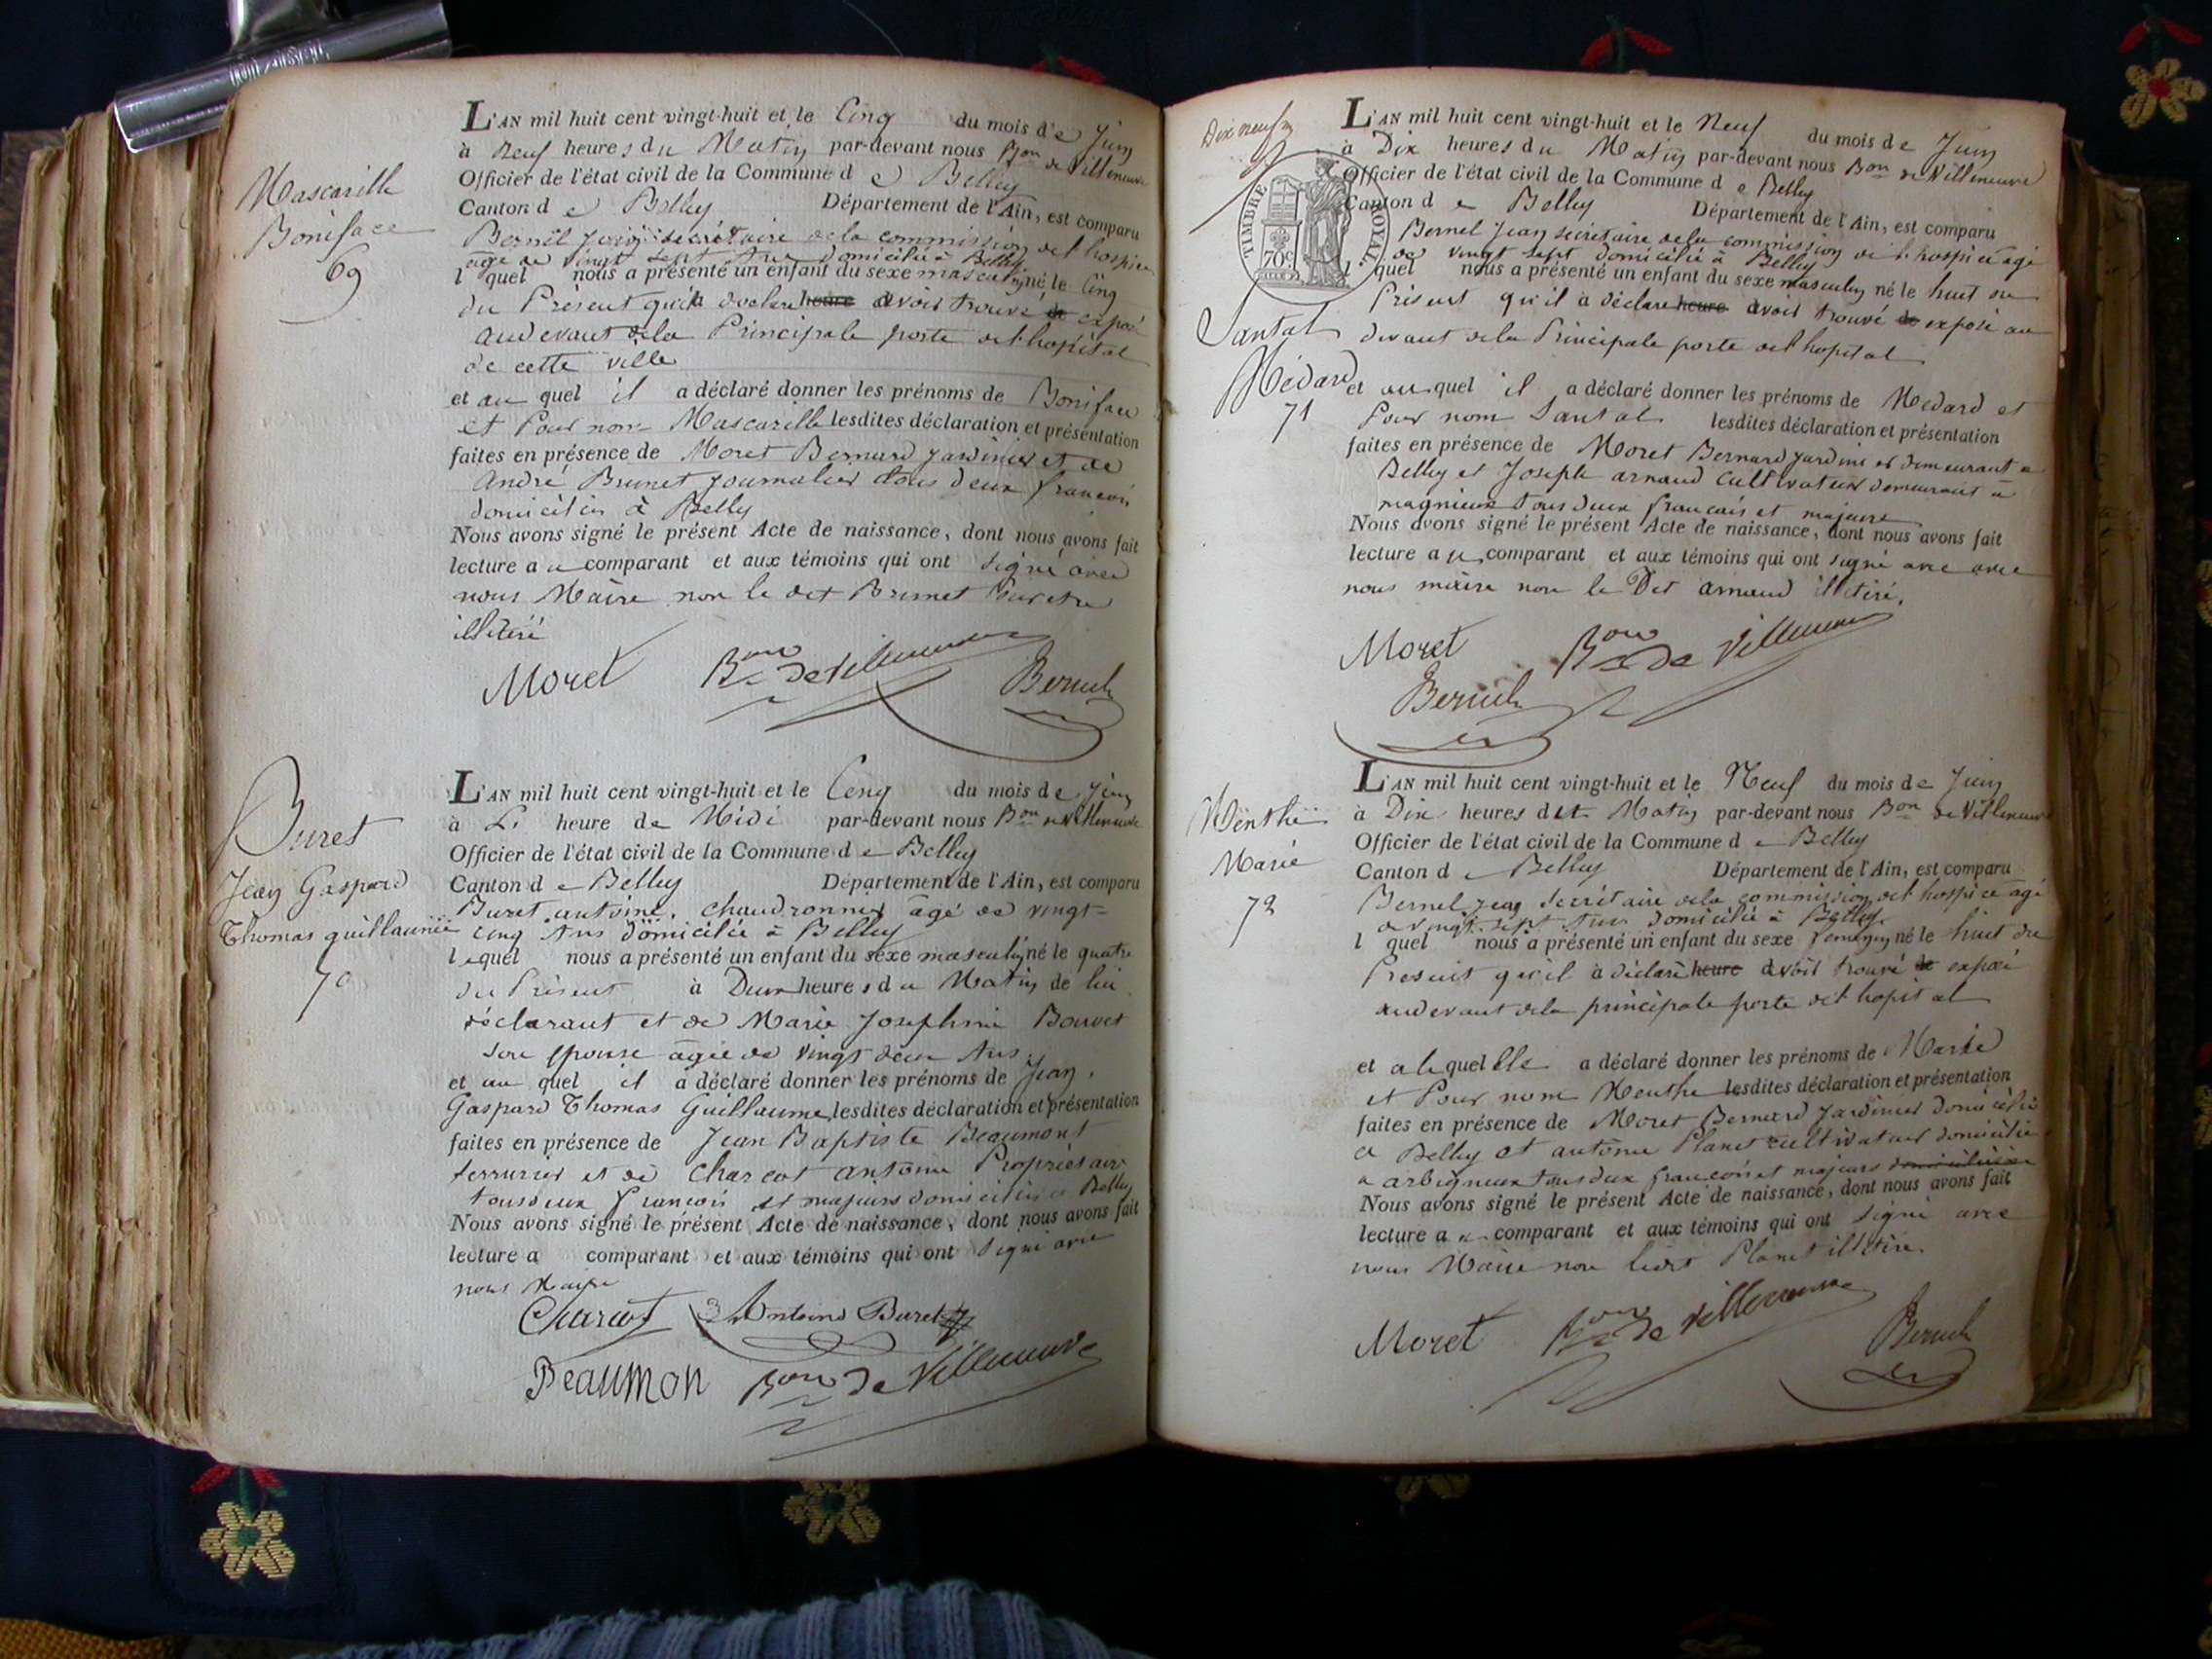 Mascarille
Boniface
69
L'AN mil huit cent vingt-huit et le Cinq du mois de Juin
à Neuf heures du Matin par-devant nous Bon de Villeneuve
Officier de l'état civil de la Commune d e Belley
Canton d e Belley Département de l'Ain, est comparu
Bernel Jean secrétaire de la commission de l'hospice
agé de vingt sept Ans domicilié à Belley
l quel nous a présenté un enfant du sexe masculin né le Cinq
du Présent qu'il à declaré heure avoir trouvé exposé
audevant de la Principale porte de l'hopital
de cette ville
et au quel il a déclaré donner les prénoms de Boniface
et Pour nom Mascarille lesdites déclaration et présentation
faites en présence de Moret Bernard jardinier et de
André Brunet journalier tous deux francais
domiciliés à Belley
Nous avons signé le présent Acte de naissance, dont nous avons fait
lecture a u comparant et aux témoins qui ont signé avec
nous Maire non le dit Brunet Pour etre
illitéré
Moret Bon de Villeneuve Bernel
Buret
Jean Gaspard
Thomas guillaume
70
L'AN mil huit cent vingt-huit et le Cinq du mois de Juin
à heure de Midi par-devant nous Bon de Villeneuve
Officier de l'état civil de la Commune d e Belley
Canton d e Belley Département de l'Ain, est comparu
Buret antoine, chaudronnier agé de vingt-
cinq Ans domicilié à Belley
lequel nous a présenté un enfant du sexe masculin né le quatre
du Présent à Deux heures du Matin de lui
déclarant et de Marie Josephine Bouvet
son epouse agée de vingt deux Ans
et au quel il a déclaré donner les prénoms de Jean,
Gaspard Thomas Guillaume lesdites déclaration et présentation
faites en présence de Jean Baptiste Beaumont
serrurier et de Charcot antoine Propriétaire
tous deux francais et majeurs domiciliés a Belley
Nous avons signé le présent Acte de naissance, dont nous avons fait
lecture a comparant et aux témoins qui ont signé avec
nous Maire
Charcot Antoine Buret
Beaumon Bon de Villeneuve
Dix neuf
TIMBRE ROYAL
70c
Santal
Médard
71
L'AN mil huit cent vingt-huit et le Neuf du mois de Juin
à Dix heures du Matin par-devant nous Bon de Villeneuve
Officier de l'état civil de la Commune d e Belley
Canton d e Belley Département de l'Ain, est comparu
Bernel Jean secrétaire de la commission de l'hospice agé
de vingt sept domicilié à Belley
l quel nous a présenté un enfant du sexe masculin né le huit du
Présent qu'il à déclaré heure avoir trouvé exposé au
devant de la Principale porte de l'hopital
et au quel il a déclaré donner les prénoms de Medard et
Pour nom Santal lesdites déclaration et présentation
faites en présence de Moret Bernard jardinier demeurant a
Belley et Joseph arnaud Cultivateur demeurant à
magnieux tous deux francais et majeurs
Nous avons signé le présent Acte de naissance, dont nous avons fait
lecture a u comparant et aux témoins qui ont signé avec avec
nous maire non le Dit arnaud illitéré.
Moret Bon de Villeneuve
Bernel
Menthe
Marie
72
L'AN mil huit cent vingt-huit et le Neuf du mois de Juin
à Dix heures du Matin par-devant nous Bon de Villeneuve
Officier de l'état civil de la Commune d e Belley
Canton d e Belley Département de l'Ain, est comparu
Bernel Jean Secrétaire de la commission de l'hospice agé
de vingt sept Ans domicilié à Belley
l quel nous a présenté un enfant du sexe féminin né le huit du
Present qu'il à déclaré heure avoir trouvé exposé
audevant de la principale porte de l'hopital
et a laquelle a déclaré donner les prénoms de Marie
et Pour nom Menthe lesdites déclaration et présentation
faites en présence de Moret Bernard jardinier domicilié
a Belley et antoine Planet cultivateur domicilié
a arbignieux tous deux francais et majeurs
Nous avons signé le présent Acte de naissance, dont nous avons fait
lecture a u comparant et aux témoins qui ont signé avec
nous Maire non ledit Planet illitéré.
Moret Bon de Villeneuve Bernel